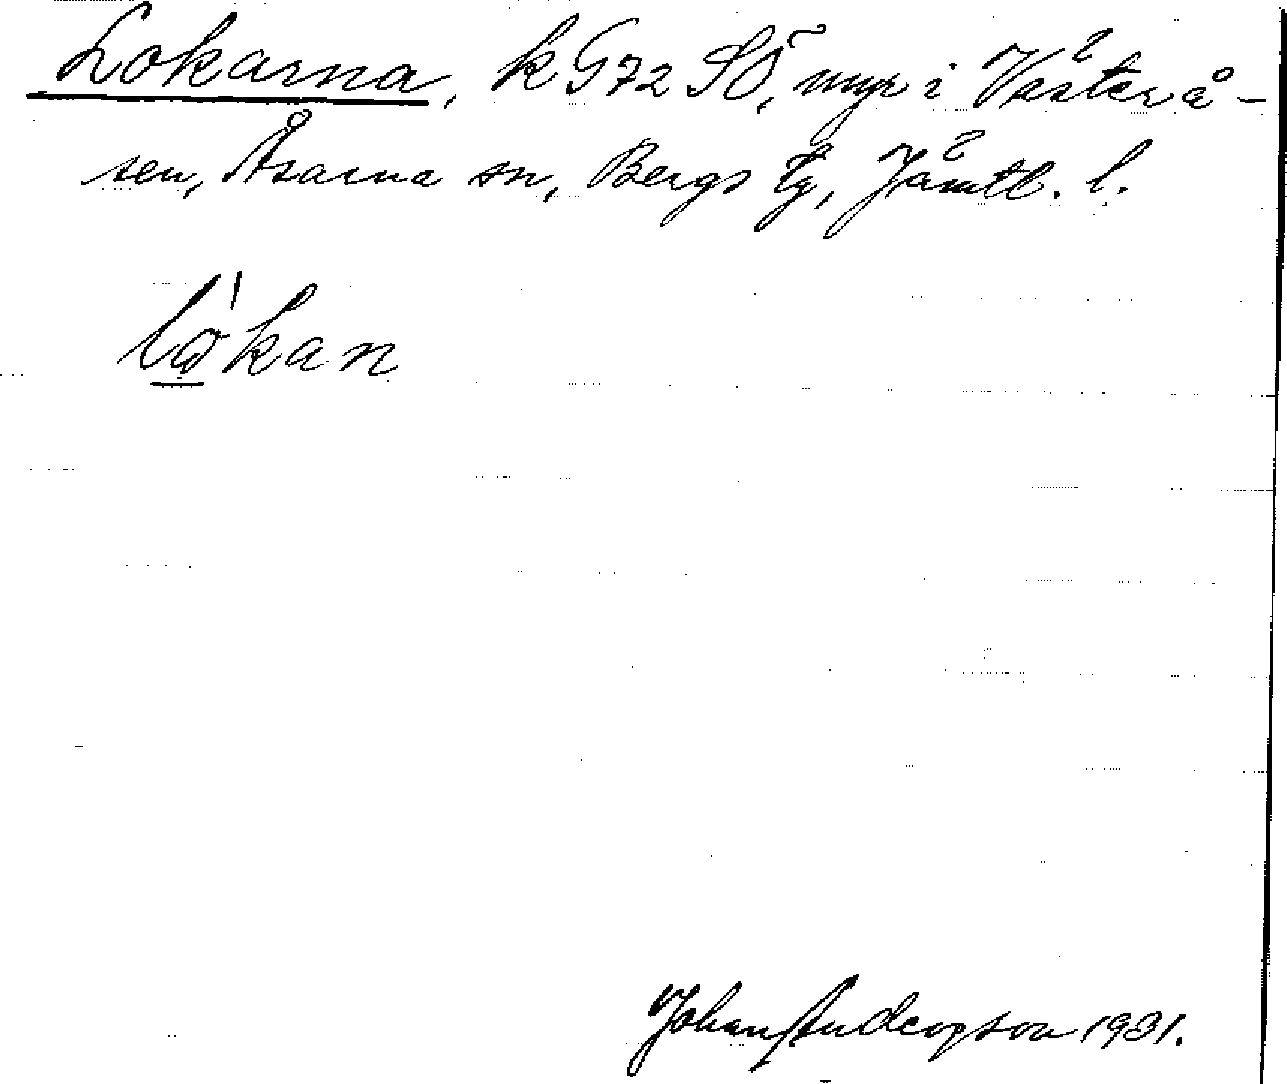 Lokarna, k G72 SÖ, myr i Västerå-
sen, Åsarna sn, Bergs tg, Jämtl. l.
lo̱'kan
Johan Anderson 1931.